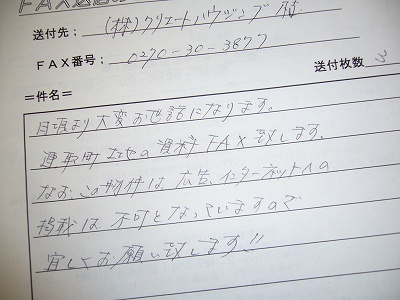 FAX送
送付先: (株)クリエートハウジング 様
FAX番号: 0270-30-3877
送付枚数 3
=件名=
日頃より大変お世話になります。
土地の資料FAX致します。
なお、この物件は、広告、インターネットへの
掲載は不可となっていますので
宜しくお願い致します!!